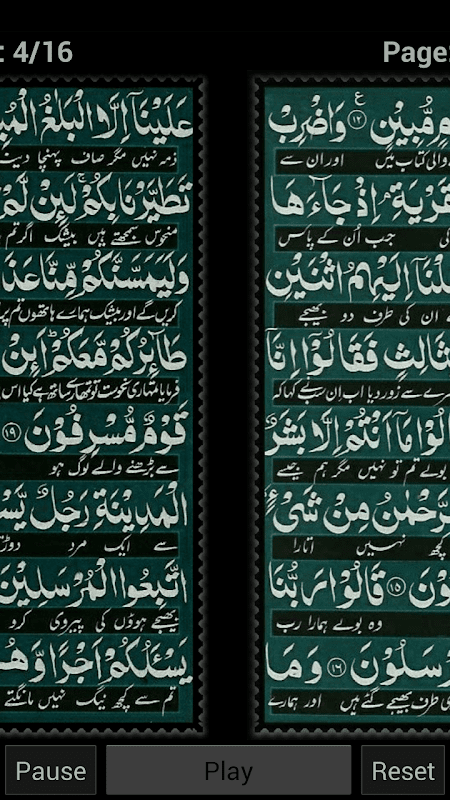 : 4/16
Page:
مٍ مُّبِیْنٍ ﴿۱۲﴾ وَاضْرِبْ
والی کتاب میں اور ان سے
قَرْیَةِ ۘ اِذْ جَآءَهَا
کی جب اُن کے پاس
لْنَاۤ اِلَیْهِمُ اثْنَیْنِ
ے ان کی طرف دو بھیجے
ثَالِثٍ فَقَالُوْۤا اِنَّاۤ
رے سے زور دیا اب ان سب نے کہا کہ
الُوْا مَاۤ اَنْتُمْ اِلَّا بَشَرٌ
بولے تم تو نہیں مگر ہم جیسے
رَّحْمٰنُ مِنْ شَیْءٍ
کچھ نہیں اتارا
وْنَ ﴿۱۵﴾ قَالُوْا رَبُّنَا
وہ بولے ہمارا رب
رْسَلُوْنَ ﴿۱۶﴾ وَمَا
ی طرف بھیجے گئے ہیں اور ہمارے
عَلَیْنَاۤ اِلَّا الْبَلٰغُ الْمُبِ
ذمہ نہیں مگر صاف پہنچا دین
تَطَیَّرْنَا بِكُمْ ۚ لَئِنْ لَّمْ
منحوس سمجھتے ہیں بیشک اگر تم
وَلَیَمَسَّنَّكُمْ مِّنَّا عَذَا
کریں گے اور بیشک ہمارے ہاتھوں تم پر
طَآئِرُكُمْ مَّعَكُمْ ؕ اَئِنْ
فرمایا تمہاری نحوست تو تمہارے ساتھ ہے کیا اس
قَوْمٌ مُّسْرِفُوْنَ ﴿۱۹﴾
سے بڑھنے والے لوگ ہو
الْمَدِیْنَةِ رَجُلٌ یَّسْ
سے ایک مرد دوڑت
اتَّبِعُوا الْمُرْسَلِیْنَ
بھیجے ہوؤں کی پیروی کرو
یَسْـَٔلُكُمْ اَجْرًا وَّهُ
تم سے کچھ نیگ نہیں مانگتے
Pause
Play
Reset